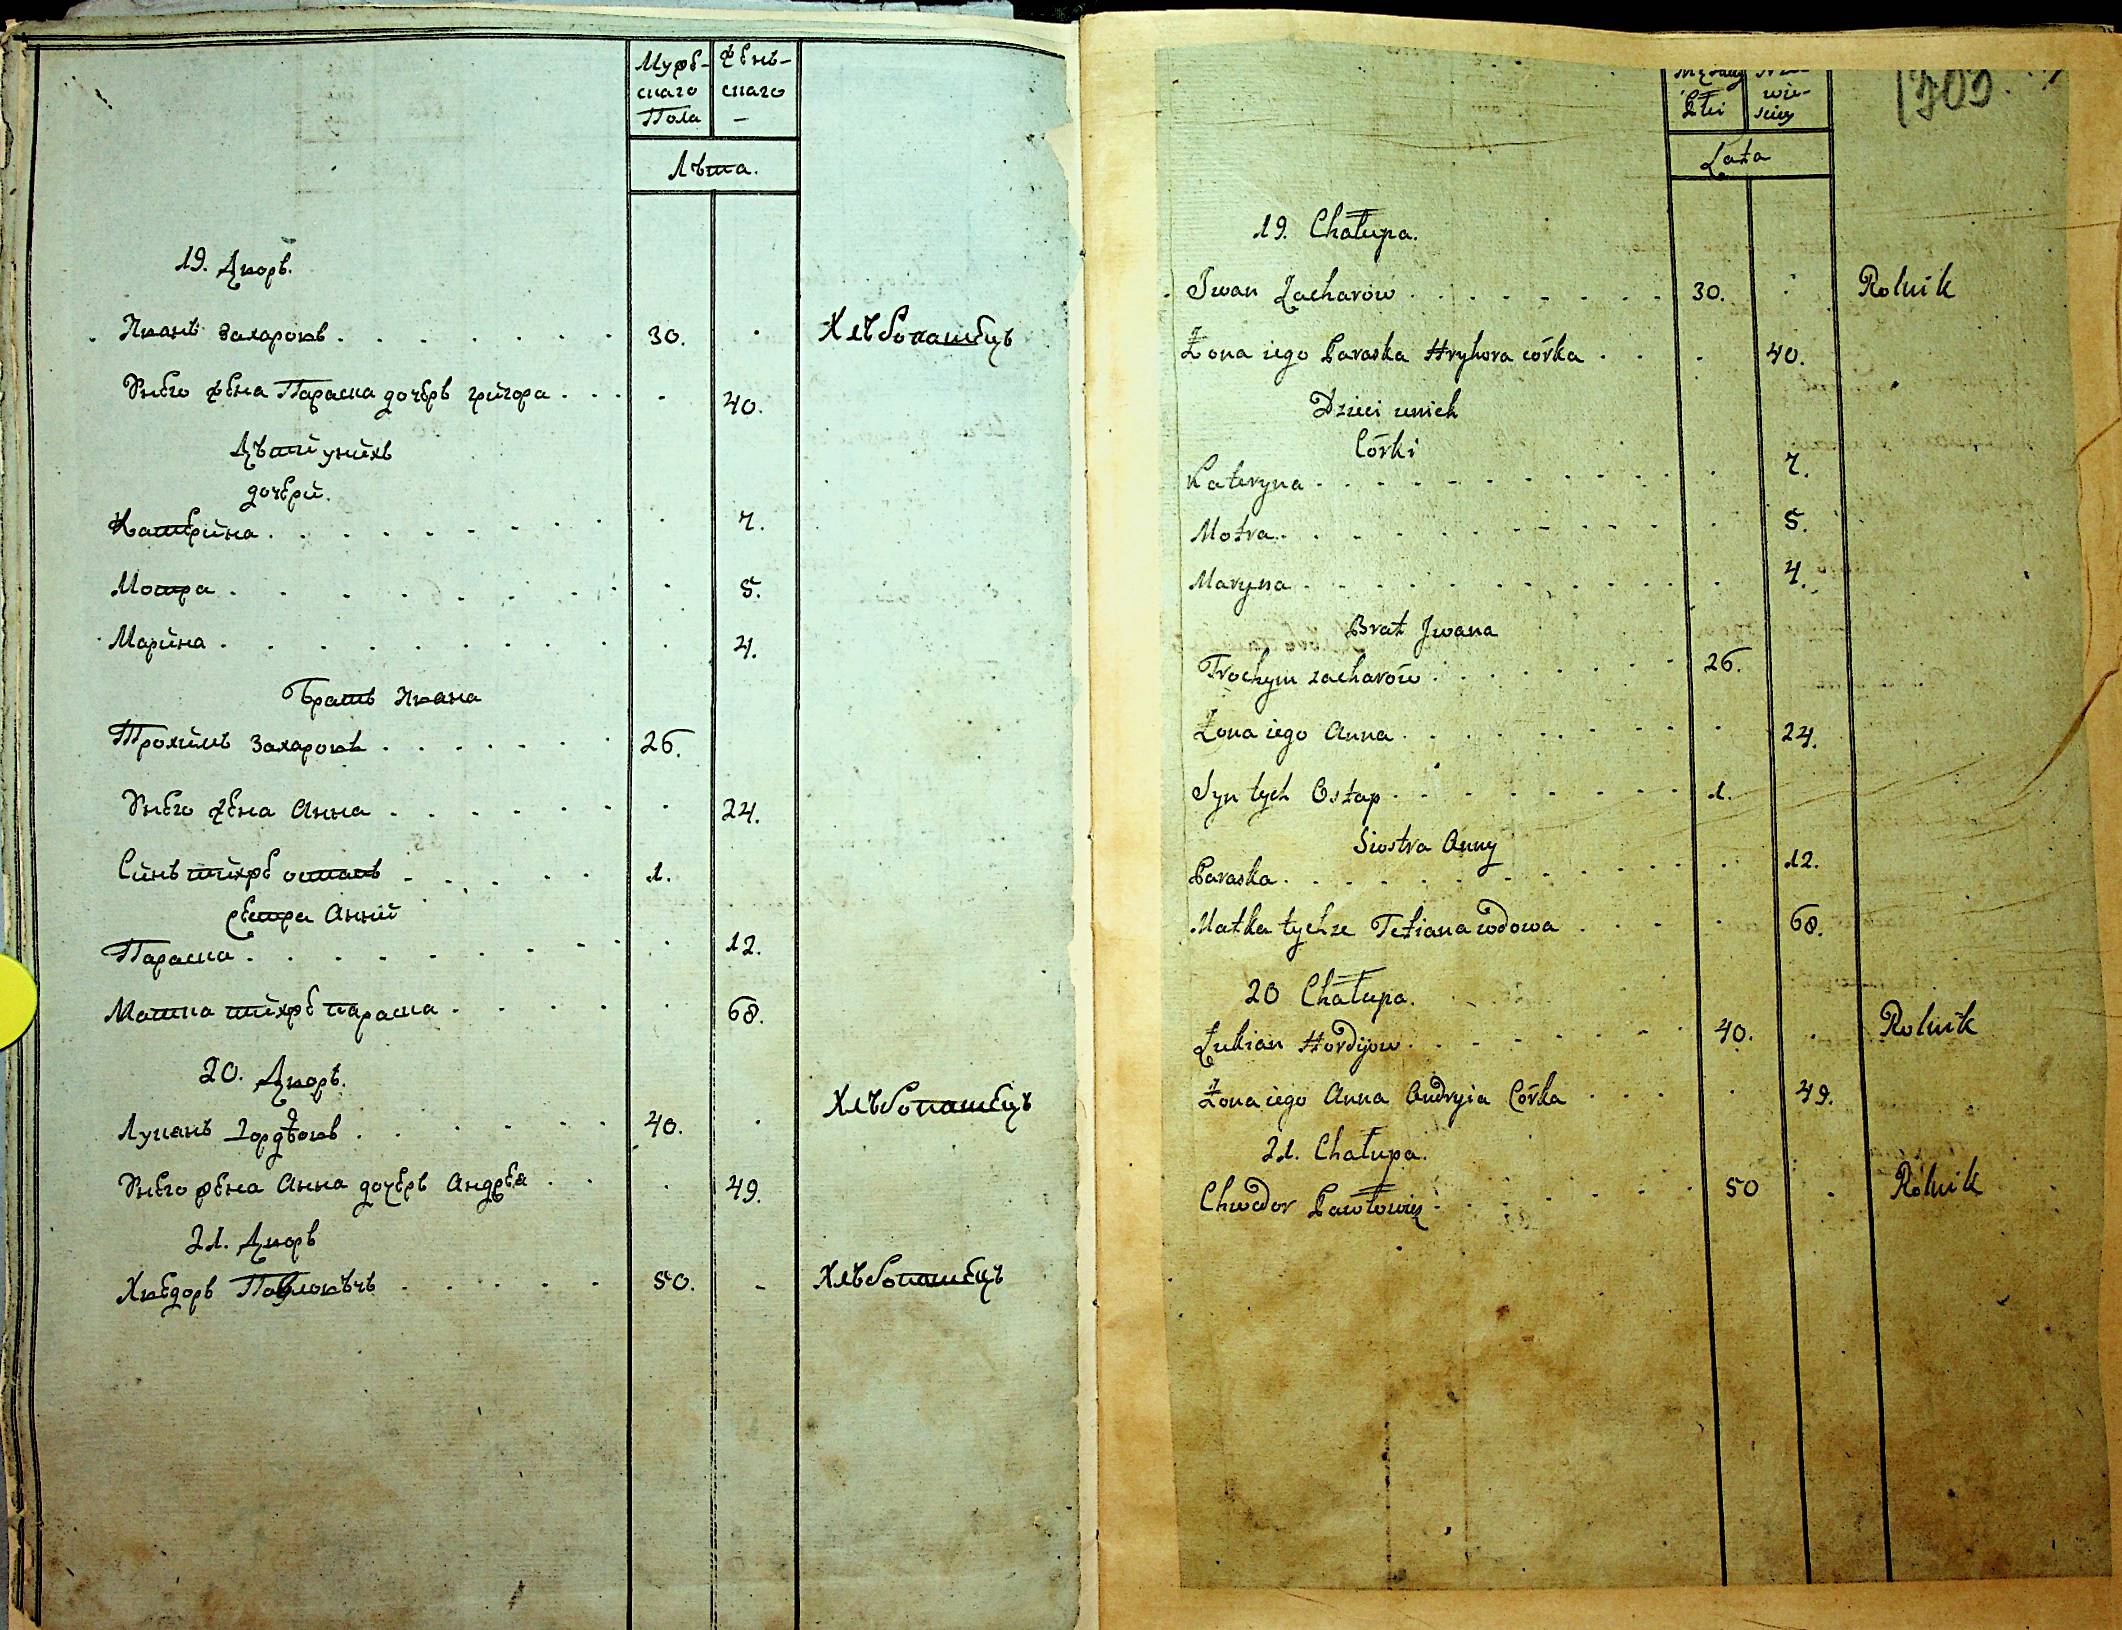 Муже- Жень-
скаго скаго
Пола -
Лѣта.
19. Дворъ.
Иванъ Захаровъ . . . . . . . 30. . Хлѣбопашецъ
Унего жена Параска дочерь григора . . . . 40.
Дѣтй унйхъ
дочерй.
Катерйна . . . . . . . . . . 7.
Мотра . . . . . . . . . 5.
Марйна . . . . . . . . . 4.
Братъ Ивана
Трохймъ Захаровъ . . . . . . . 26.
Унего жена Анна . . . . . . . 24.
Сйнъ тйхже остапъ . . . . . 1.
сестра Аннй
Параска . . . . . . . . . 12.
Матка тйхже параска . . . . . 68.
20. Дворъ.
Луканъ Гордѣовъ . . . . . . 40. . Хлѣбопашецъ
Унего жена Анна дочерь Андрея . . . 49.
21. Дворъ
Хведоръ Павловѣчъ . . . . . 50. - Хлѣбопашецъ
Płci wie-
sciey
Lata
1703.
19. Chałupa.
Iwan Zacharow . . . . . . . . 30. . Rolnik
Żona iego Paraska Hryhora córka . . . 40.
Dzieci unich
Córki
Kateryna . . . . . . . . . . . 7.
Motra . . . . . . . . . . . 5.
Maryna . . . . . . . . . . . 4.
Brat Jwana
Trochym zacharów . . . . . . . 26.
Żona iego Anna . . . . . . . . . 24.
Syn tych Ostap . . . . . . . . . 1.
Siostra Anny
Paraska . . . . . . . . . . 12.
Matka tychze Tetiana wdowa . . . . 68.
20 Chałupa.
Łukian Hordijow . . . . . . . 40. . Rolnik
Żona iego Anna Andryia Córka . . . . 49.
21. Chałupa.
Chwedor Pawłowicz . . . . . . . 50 . Rolnik